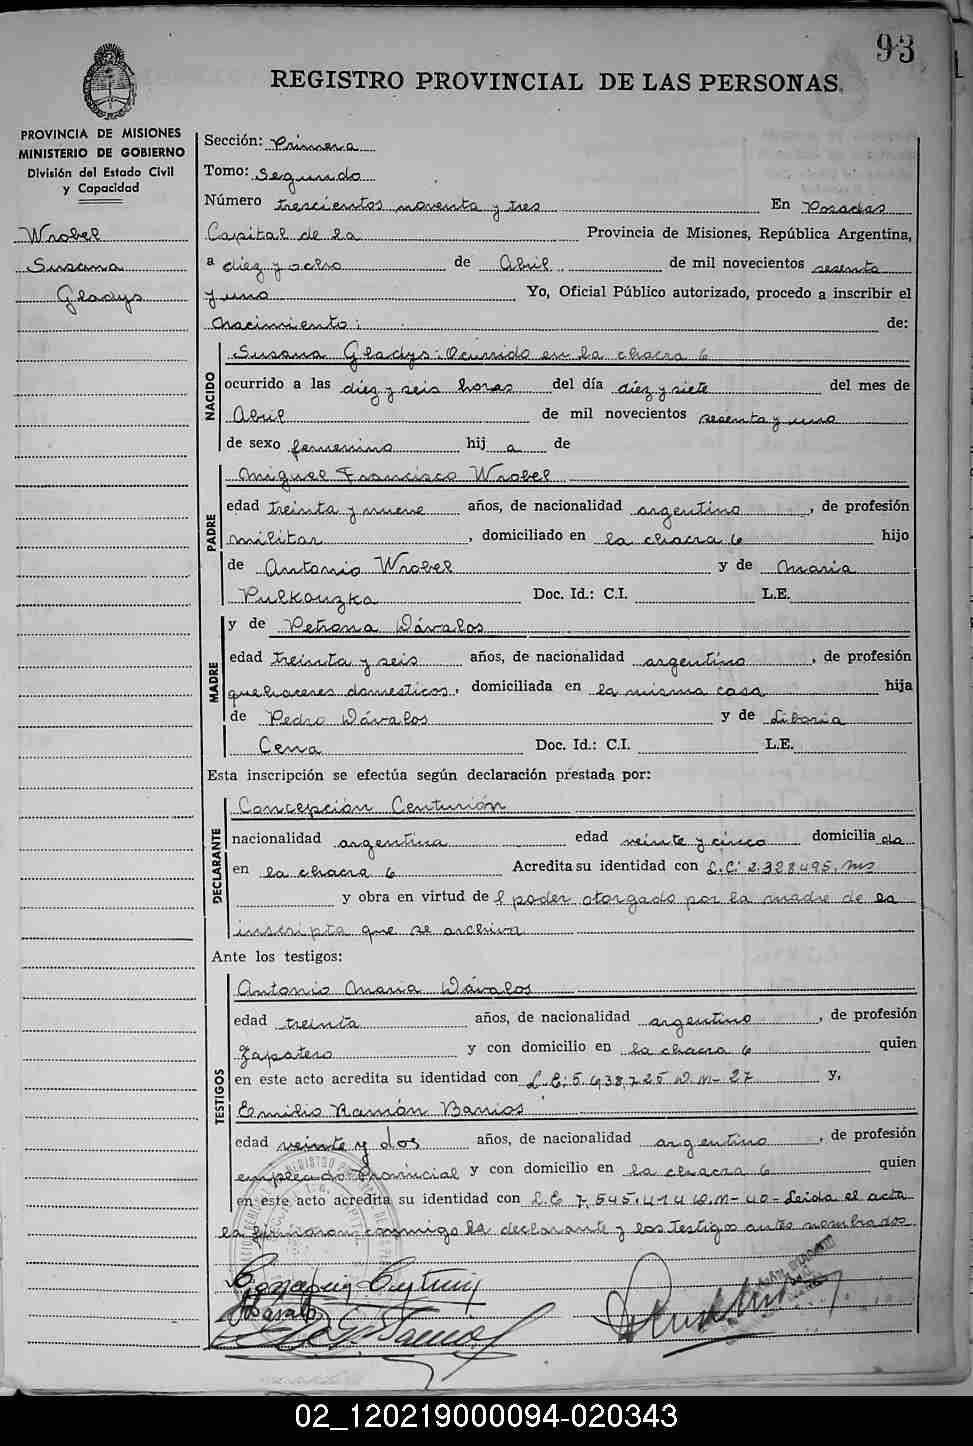 93
REGISTRO PROVINCIAL DE LAS PERSONAS
PROVINCIA DE MISIONES
MINISTERIO DE GOBIERNO
División del Estado Civil
y Capacidad
Wrobel
Susana
Gladys
Sección: Primera
Tomo: Segundo
Número trescientos noventa y tres En Posadas
Capital de la Provincia de Misiones, República Argentina,
a diez y ocho de Abril de mil novecientos sesenta
y uno Yo, Oficial Público autorizado, procedo a inscribir el
Nacimiento: de:
NACIDO
Susana Gladys: Ocurrido en la chacra 6
ocurrido a las diez y seis horas del día diez y siete del mes de
Abril de mil novecientos sesenta y uno
de sexo femenino hij a de
PADRE
Miguel Francisco Wrobel
edad treinta y nueve años, de nacionalidad argentino, de profesión
militar, domiciliado en la chacra 6 hijo
de Antonio Wrobel y de Maria
Pulkouzka Doc. Id.: C.I. L.E.
MADRE
y de Petrona Dávalos
edad treinta y seis años, de nacionalidad argentino, de profesión
quehaceres domesticos, domiciliada en la misma casa hija
de Pedro Dávalos y de Liboria
Cena Doc. Id.: C.I. L.E.
Esta inscripción se efectúa según declaración prestada por:
DECLARANTE
Concepción Centurión
nacionalidad argentina edad veinte y cinco domicilia da
en la chacra 6 Acredita su identidad con L.C: 2.328.495. Ms
y obra en virtud de l poder otorgado por la madre de la
inscripta que se archiva
Ante los testigos:
TESTIGOS
Antonio Maria Dávalos
edad treinta años, de nacionalidad argentino, de profesión
Zapatero y con domicilio en la chacra 6 quien
en este acto acredita su identidad con L.E: 5.938.725 D.M- 27 y,
Emilio Ramón Barrios
edad veinte y dos años, de nacionalidad argentino, de profesión
empleado Provincial y con domicilio en la chacra 6 quien
en este acto acredita su identidad con L.E 7.545.414 D.M- 40- Leida el acta
la firmaron conmigo la declarante y los Testigos antes nombrados
02_120219000094-020343